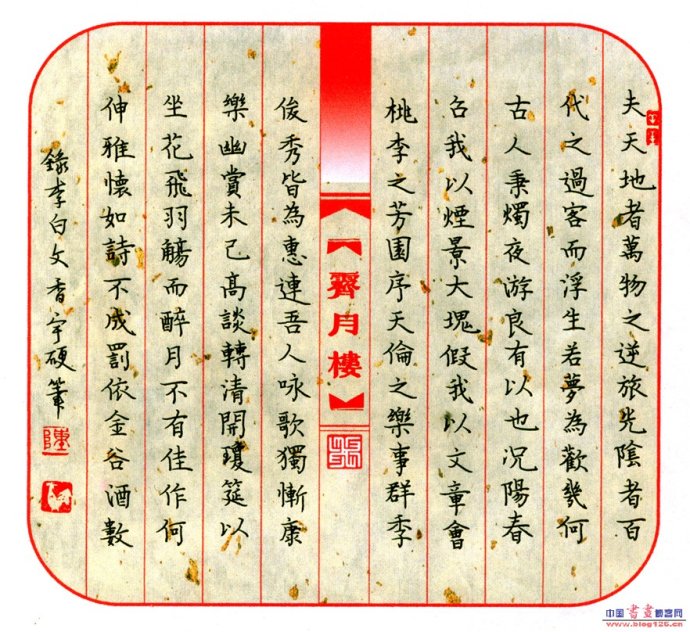 夫天地者萬物之逆旅光陰者百
代之過客而浮生若夢為歡幾何
古人秉燭夜游良有以也况陽春
召我以煙景大塊假我以文章會
桃李之芳園序天倫之樂事群季
【霽月樓】
俊秀皆為惠連吾人咏歌獨慚康
樂幽賞未已高談轉清開瓊筵以
坐花飛羽觴而醉月不有佳作何
伸雅懷如詩不成罰依金谷酒數
錄李白文香宇硬筆
中国書畫
www.blog126.cn